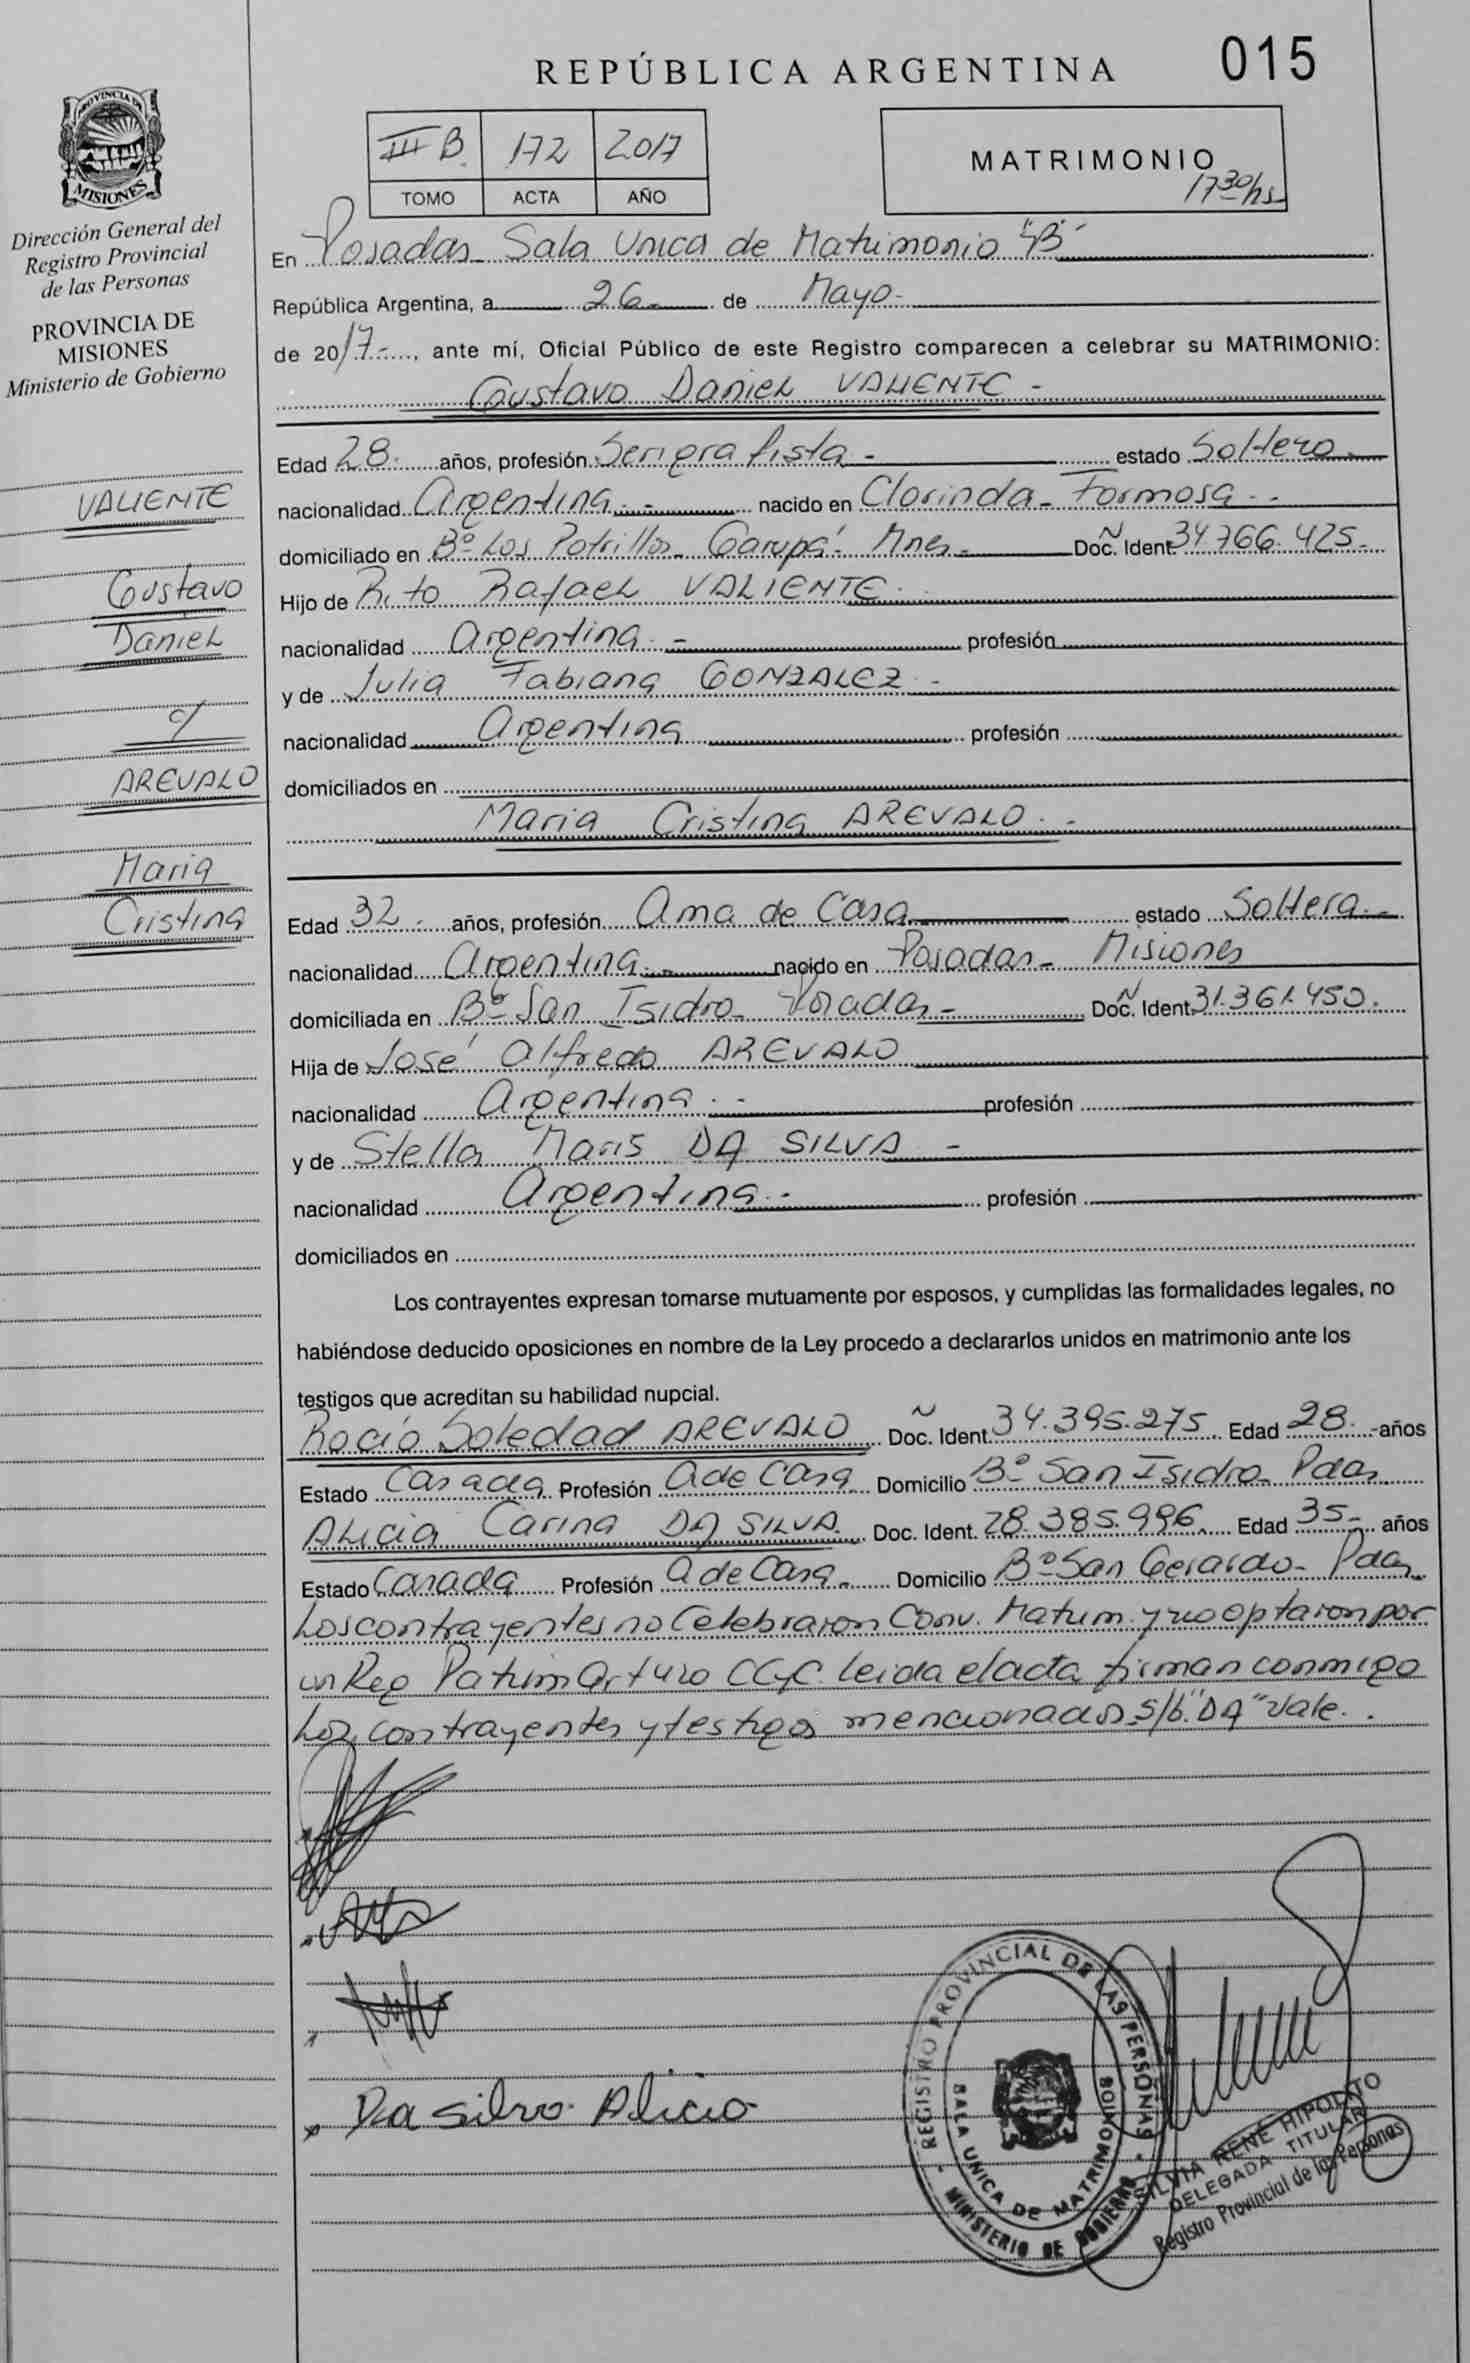 REPÚBLICA ARGENTINA 015
PROVINCIA DE
MISIONES
Dirección General del
Registro Provincial
de las Personas
PROVINCIA DE
MISIONES
Ministerio de Gobierno
III B. 172 2017
TOMO ACTA AÑO
MATRIMONIO
17 30 hs
En Posadas Sala Unica de Matrimonio "B"
República Argentina, a 26 de Mayo
de 2017, ante mí, Oficial Público de este Registro comparecen a celebrar su MATRIMONIO:
Gustavo Daniel VALIENTE
VALIENTE
Gustavo
Daniel
c/
AREVALO
Maria
Cristina
Edad 28 años, profesión Serigrafista estado Soltero
nacionalidad Argentina nacido en Clorinda - Formosa
domiciliado en Bº Los Potrillos Garupá Mnes Doc. Ident 34.766.425
Hijo de Rito Rafael VALIENTE
nacionalidad Argentina profesión
y de Julia Fabiana GONZALEZ
nacionalidad Argentina profesión
domiciliados en
Maria Cristina AREVALO
Edad 32 años, profesión Ama de Casa estado Soltera
nacionalidad Argentina nacido en Posadas - Misiones
domiciliada en Bº San Isidro - Posadas Doc. Ident 31.361.450.
Hija de José Alfredo AREVALO
nacionalidad Argentina profesión
y de Stella Maris DA SILVA
nacionalidad Argentina profesión
domiciliados en
Los contrayentes expresan tomarse mutuamente por esposos, y cumplidas las formalidades legales, no
habiéndose deducido oposiciones en nombre de la Ley procedo a declararlos unidos en matrimonio ante los
testigos que acreditan su habilidad nupcial.
Rocio Soledad AREVALO Doc. Ident. 34.395.275 Edad 28 años
Estado Casada Profesión A de Casa Domicilio Bº San Isidro Pdas
Alicia Carina DA SILVA Doc. Ident. 28.385.996 Edad 35 años
Estado Casada Profesión A de Casa Domicilio Bº San Gerardo - Pdas
Los contrayentes no Celebraron Conv. Matrim. y no optaron por
un Reg Patrim CCyC. leida el acta firman conmigo
Los contrayentes y testigos mencionados s/b "DA" Vale.
Da silva Alicia
REGISTRO PROVINCIAL DE LAS PERSONAS
SALA UNICA DE MATRIMONIOS
MINISTERIO DE GOBIERNO
SILVIA RENE HIPOLITO
DELEGADA TITULAR
Registro Provincial de las Personas